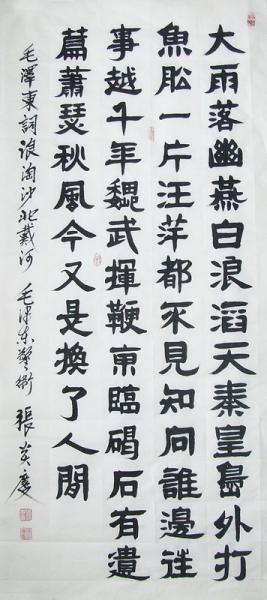 大雨落幽燕白浪滔天秦皇島外打
魚船一片汪洋都不見知向誰邊往
事越千年魏武揮鞭東臨碣石有遺
篇蕭瑟秋風今又是換了人間
毛澤東詞浪淘沙北戴河 張英慶